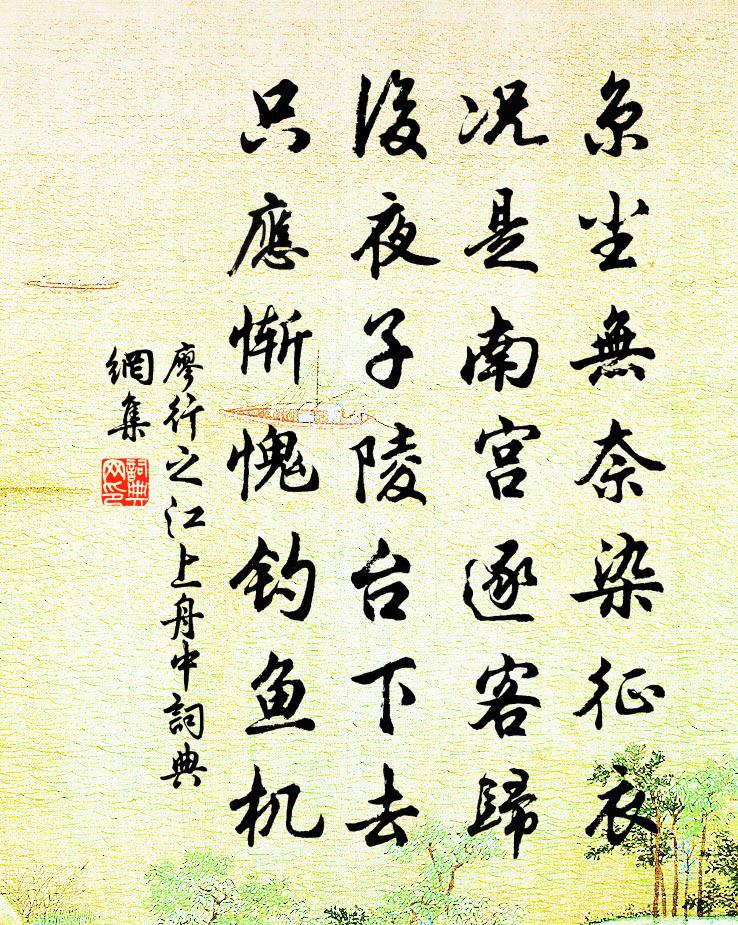 京尘無奈染征衣
况是南宫逐客歸
後夜子陵台下去
只應惭愧钓鱼机
廖行之江上舟中詞典
網集
詞典
网印